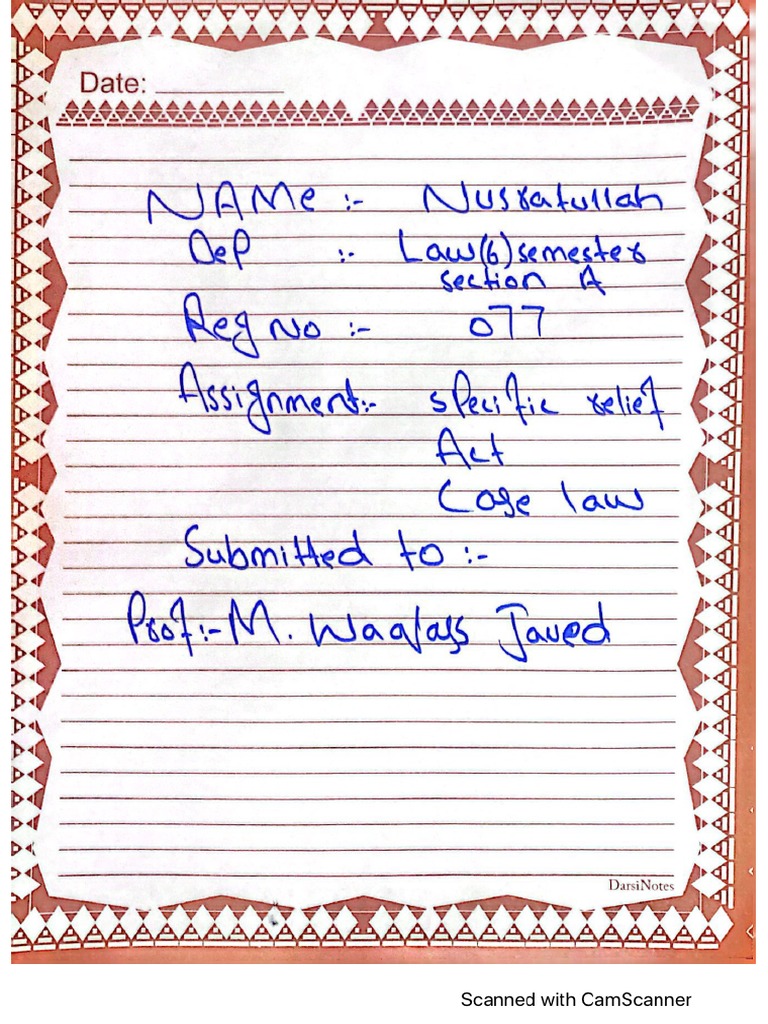 Date:
NAMe :- Nusratullah
Dep :- Law(6)semester
section A
Reg No :- 077
Assignment:- specific relief
Act
Case law
Submitted to :-
Prof:- M. Waqlass Javed
DarsiNotes
Scanned with CamScanner